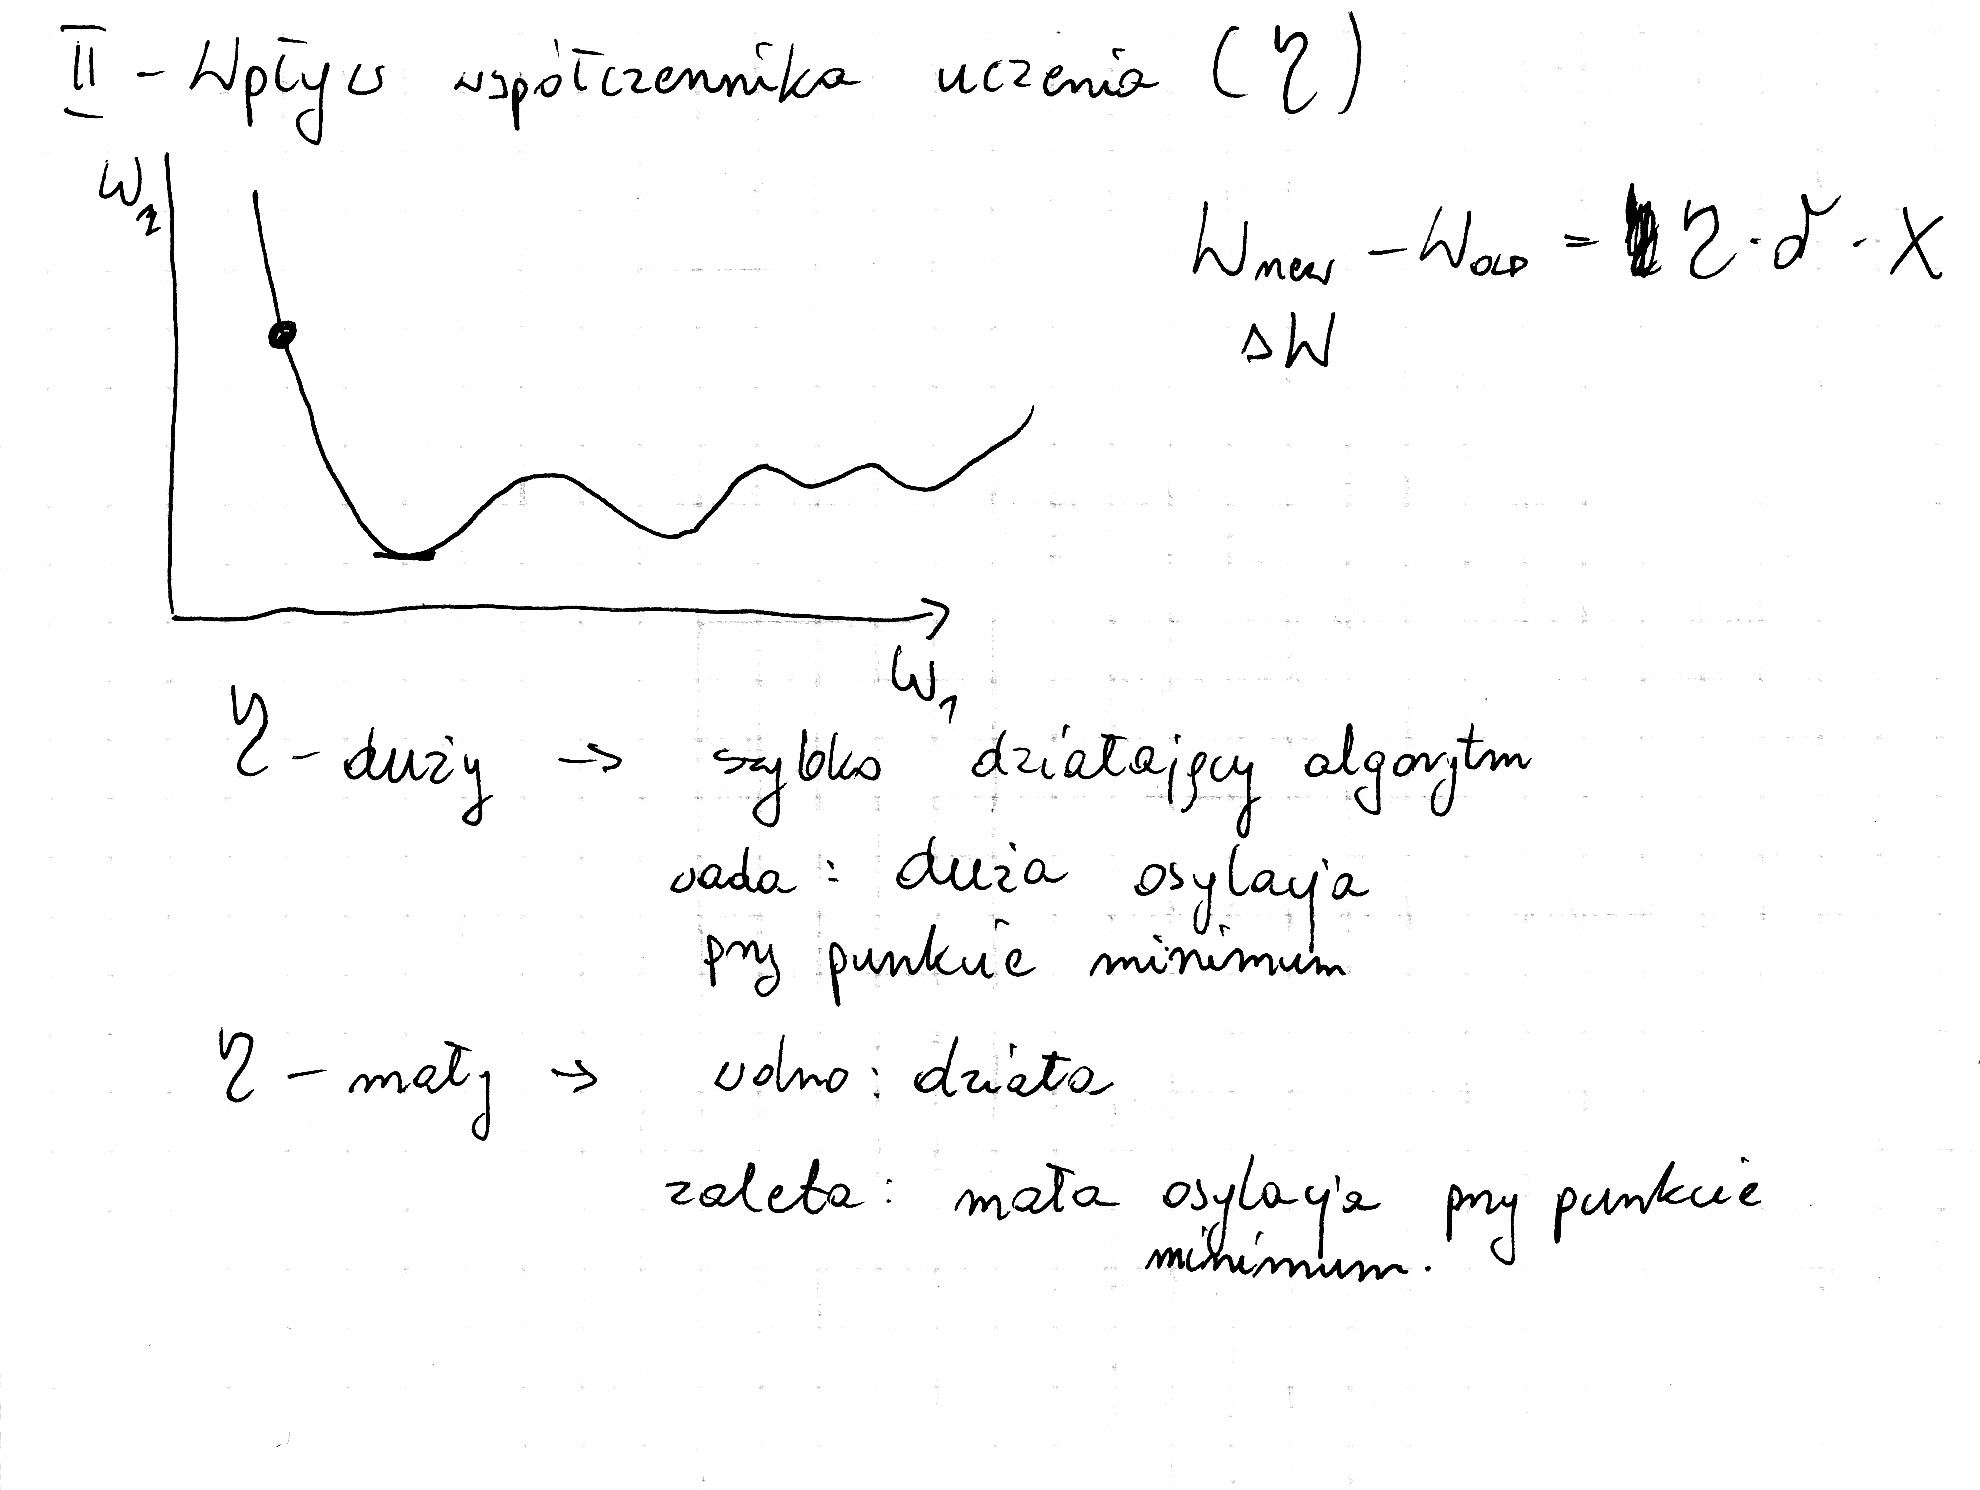 II - Wpływ współczennika uczenia (η)
W₂
W_new - W_OLD = η · δ · X
ΔW
W₁
η - duży → szybko działający algorytm
wada : duża osylacja
przy punkcie minimum
η - mały → wolno : działa
zaleta : mała osylacja przy punkcie
minimum.